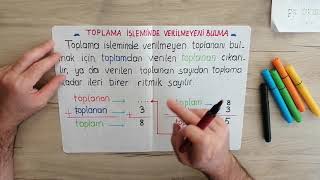 TOPLAMA İŞLEMİNDE VERİLMEYENİ BULMA
Toplama işleminde verilmeyen toplananı bul
mak için toplamdan verilen toplanan çıkarı
lır, ya da verilen toplanan sayıdan toplama
kadar ileri birer ritmik sayılır.
toplanan
toplanan 3
+
toplam 8
toplam 8
3
5